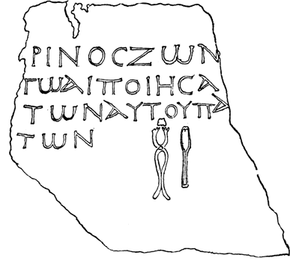 ΡΙΝΟϹΖΩΝ
ΓΩΑΙΠΟΙΗϹΑ
ΤΩΝΑΥΤΟΥΠΑ
ΤΩΝ